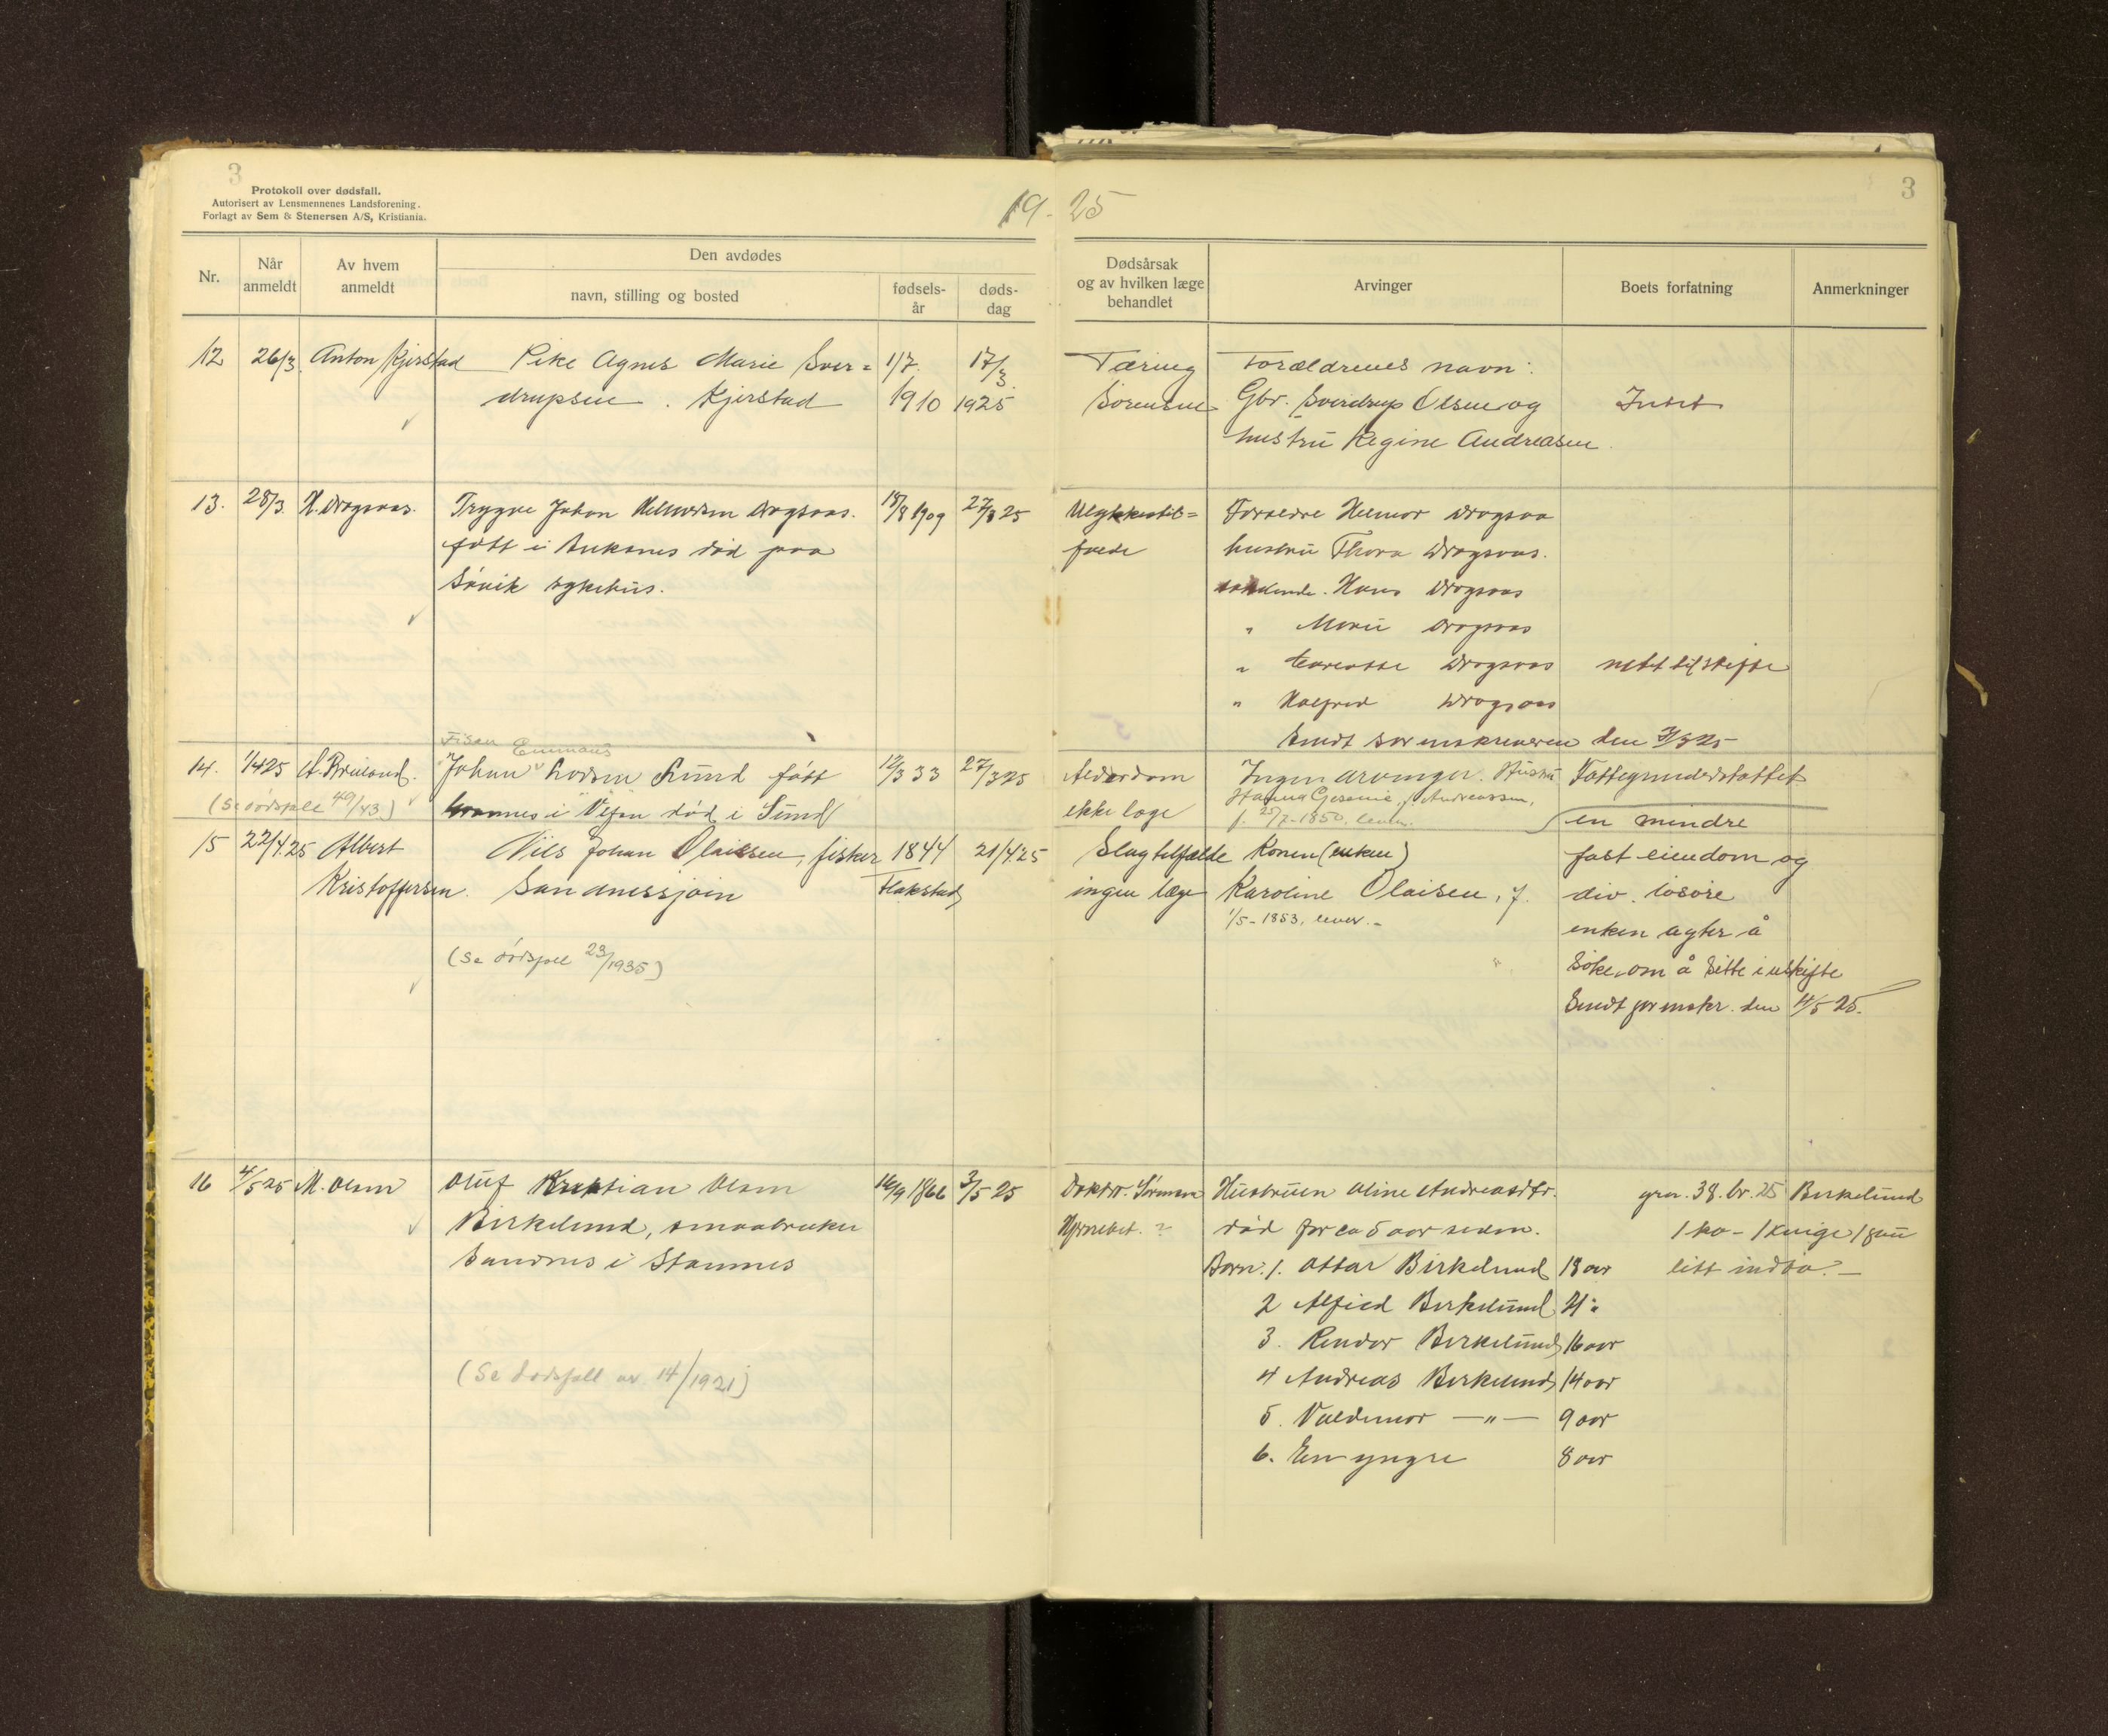 3
Protokoll over dødsfall.
Autorisert av Lensmennenes Landsforening.
Forlagt av Sem & Stenersen A/S, Kristiania.
19-25
3
Nr.
Når anmeldt
Av hvem anmeldt
Den avdødes
navn, stilling og bosted
fødsels-år
døds-dag
Dødsårsak og av hvilken læge behandlet
Arvinger
Boets forfatning
Anmerkninger
12 26/3 Anton Kjerstad Pike Agnes Marie Sver= 1/7. 17/3. Tæring Forældrenes navn:
drupsen. Kjerstad 1910 1925 Sørensen Gbr. Sverdrup Olsen og Intet
hustru Regine Andreasen.
13. 28/3. H. Dragsaas. Trygve Johan Helmersen Dragsaas. 18/8 1909 27/3 25 Ulykkestil= Foreldre Helmer Dragsaa
født i død paa felde hustru Thora Dragsaas.
Søvik sykehus. Hans Dragsaas
" Marie Dragsaas
" Dragsaas intet til skifte
" Halfred Dragsaas
Sendt sorenskriveren den 3/3 25
Emmaus
14. 1/4 25 A. Breiland. Johan Larsen Lund født 12/3 33 27/3 25 Alderdom Ingen arvinger. Hustru Fattigunderstøttet
(Se dødsfall 40/43) i Vefsn død i Lund ikke læge Hanna Andreassen,
f. 25/7-1850, lever. en mindre
15 22/4 25 Albert Nils Johan Olaisen, fisker 1844 21/4 25 Slagtilfælde Konen (enken) fast eiendom og
Kristoffersen. Sandnessjøin Flakstad ingen læge Karoline Olaisen, f. div. løsøre
1/5-1853, lever.- enken agter å
(Se dødsfall 23/1935) søke om å sitte i uskifte
Sendt sorenskr. den 4/5 25.
16 4/5 25 M. Olsen Oluf Kristian Olsen 16/9 1866 3/5 25 Doktor. Sørensen Hustruen Oline Andreasdtr. grn. 38. br. 25 Birkelund
Birkelund, smaabruker ? død for ca 5 aar siden. 1 ko - 1 kvige 1
Sandnes i Stamnes Barn. 1. Ottar Birkelund 18 aar litt indbo. -
2 Alfred Birkelund 21 "
3. Reidar Birkelund 16 aar
(Se dødsfall nr. 14/1921) 4 Andreas Birkelund 14 aar
5. Valdemar —"— 9 aar
6. En yngre 8 aar